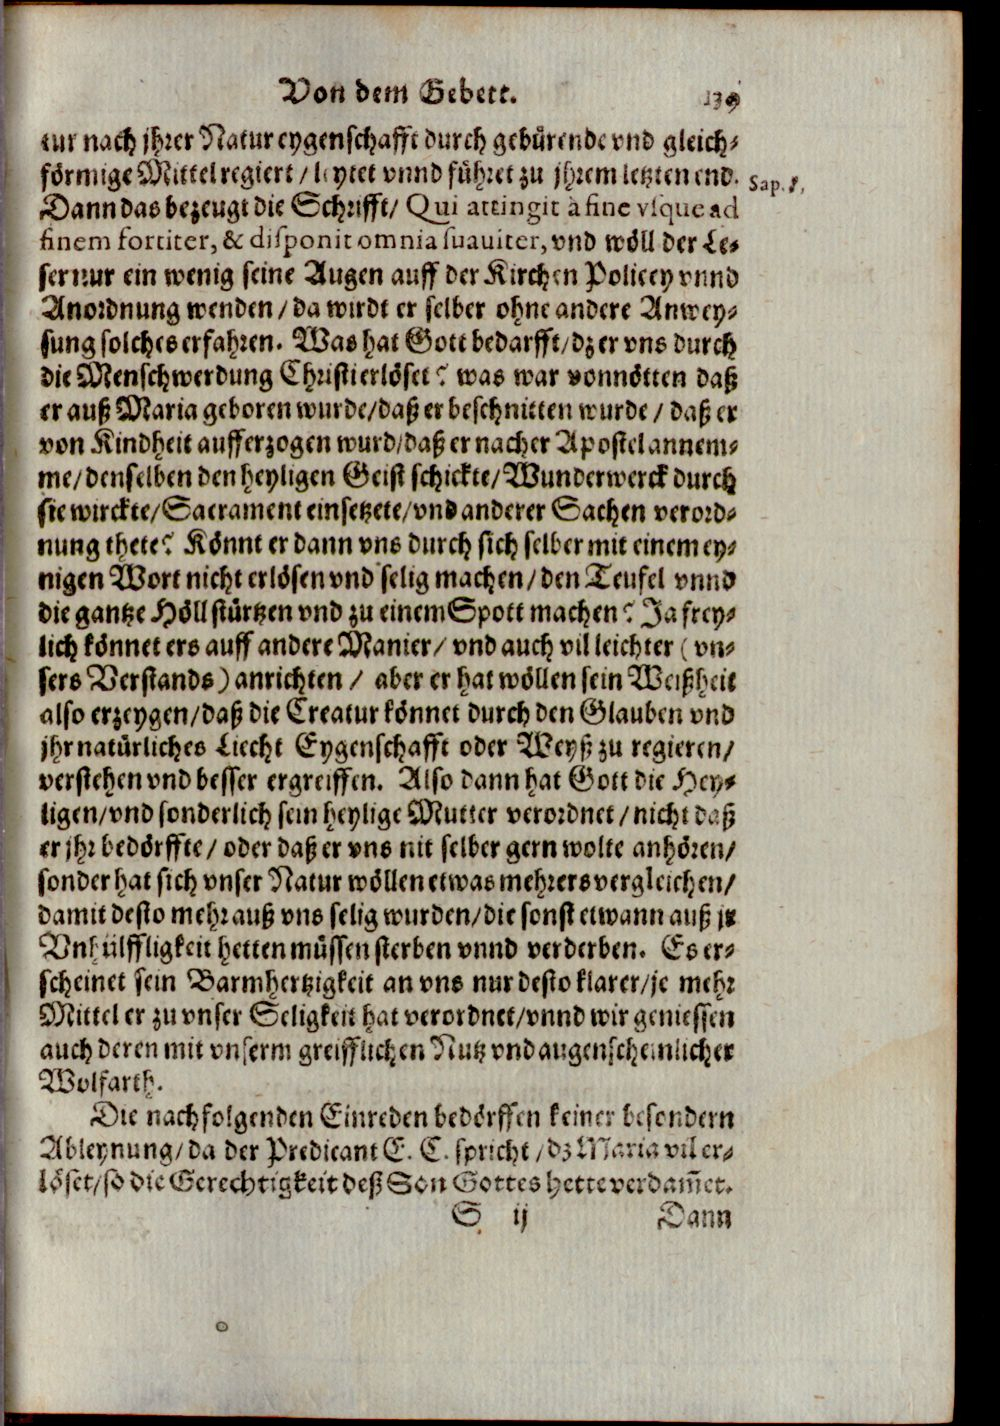 Von dem Gebett. 139
tur nach jhrer Natur eygenschafft durch gebürende vnd gleich⸗
förmige Mittel regiert / leytet vnnd führet zu jhrem letzten end. Sap. 8,
Dann das bezeugt die Schrifft/ Qui attingit à fine vsque ad
finem fortiter, & disponit omnia suauiter, vnd wöll der Le⸗
ser nur ein wenig seine Augen auff der Kirchen Policey vnnd
Anordnung wenden / da wirdt er selber ohne andere Anwey⸗
sung solches erfahren. Was hat Gott bedarfft/ dz er vns durch
die Menschwerdung Christi erlöset? was war vonnötten daß
er auß Maria geboren wurde/ daß er beschnitten wurde / daß er
von Kindheit aufferzogen wurd/ daß er nacher Apostel annem⸗
me/ denselben den heyligen Geist schickte/ Wunderwerck durch
sie wirckte/ Sacrament einsetzete/ vnd anderer Sachen verord⸗
nung thete? Könnt er dann vns durch sich selber mit einem ey⸗
nigen Wort nicht erlösen vnd selig machen/ den Teufel vnnd
die gantze Höll stürtzen vnd zu einem Spott machen? Ja frey⸗
lich könnet ers auff andere Manier/ vnd auch vil leichter ( vn⸗
sers Verstands) anrichten / aber er hat wöllen sein Weißheit
also erzeygen/ daß die Creatur könnet durch den Glauben vnd
jhr natürliches Liecht Eygenschafft oder Weyß zu regieren/
verstehen vnd besser ergreiffen. Also dann hat Gott die Hey⸗
ligen/ vnd sonderlich sein heylige Mutter verordnet / nicht daß
er jhr bedörffte/ oder daß er vns nit selber gern wolte anhören/
sonder hat sich vnser Natur wöllen etwas mehrers vergleichen/
damit desto mehr auß vns selig wurden/ die sonst etwann auß jr
Vnhülffligkeit hetten müssen sterben vnnd verderben. Es er⸗
scheinet sein Barmhertzigkeit an vns nur desto klarer/ je mehr
Mittel er zu vnser Seligkeit hat verordnet/ vnnd wir geniessen
auch deren mit vnserm greifflichen Nutz vnd augenscheinlicher
Wolfarth.
Die nachfolgenden Einreden bedörffen keiner besondern
Ableynung/ da der Predicant E. C. spricht / dz Maria vil er⸗
löset/ so die Gerechtigkeit deß Son Gottes hette verdam̄et.
S ij Dann